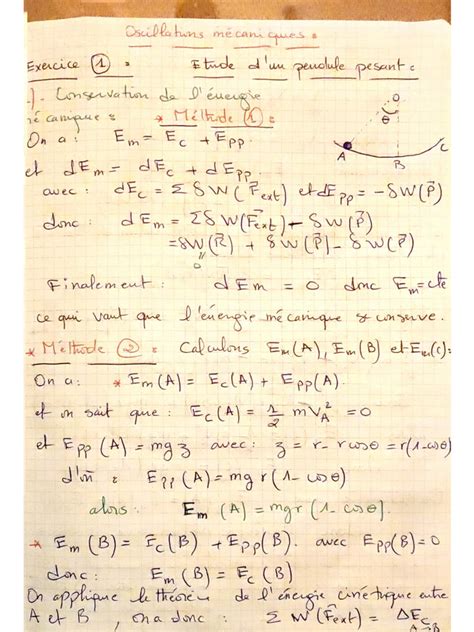 Oscillations mécaniques :
Exercice 1 : Etude d'un pendule pesant :
). Conservation de l'énergie
mécanique : * Méthode 1 :
O
θ
A
B
C
On a : Em = Ec + Epp
et dEm = dEc + dEpp
avec : dEc = Σ δW(F⃗ext) et dEpp = -δW(P⃗)
donc : dEm = Σ δW(F⃗ext) - δW(P⃗)
= δW(R⃗) + δW(P⃗) - δW(P⃗)
0
Finalement : dEm = 0 donc Em = cte
ce qui vaut que l'énergie mécanique se conserve.
* Méthode 2 : Calculons Em(A), Em(B) et Em(C) :
On a : * Em(A) = Ec(A) + Epp(A).
et on sait que : Ec(A) = 1/2 m VA² = 0
et Epp(A) = mgz avec : z = r - r cosθ = r(1-cosθ)
d'où : Epp(A) = mgr(1-cosθ)
alors : Em(A) = mgr(1-cosθ).
* Em(B) = Ec(B) + Epp(B). avec Epp(B) = 0
donc : Em(B) = Ec(B)
On applique le théorème de l'énergie cinétique entre
A et B, on a donc : Σ W(F⃗ext) = ΔEc
A→B